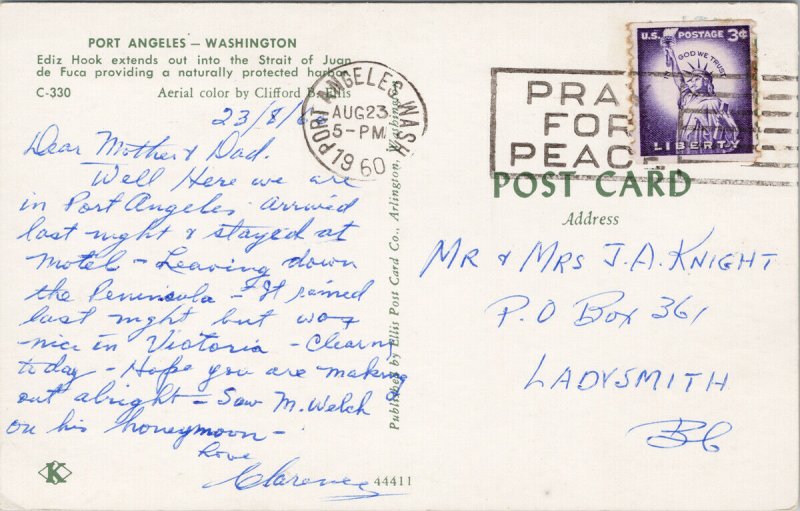 PORT ANGELES — WASHINGTON
Ediz Hook extends out into the Strait of Juan
de Fuca providing a naturally protected harbor.
C-330 Aerial color by Clifford B. Ellis
23/8/60
Dear Mother & Dad.
Well Here we are
in Port Angeles. Arrived
last night & stayed at
motel - Leaving down
the Peninsula - It rained
last night but was
nice in Victoria - Clearing
today - Hope you are making
out alright - Saw M. Welch
on his honeymoon -
Love
Clarence
K
44411
Published by Ellis Post Card Co., Arlington, Washington
PORT ANGELES, WASH.
AUG 23
5-PM
1960
PRA
FOR
PEAC
U.S. POSTAGE 3¢
IN GOD WE TRUST
LIBERTY
POST CARD
Address
MR & MRS J.A. KNIGHT
P.O BOX 361
LADYSMITH
BC